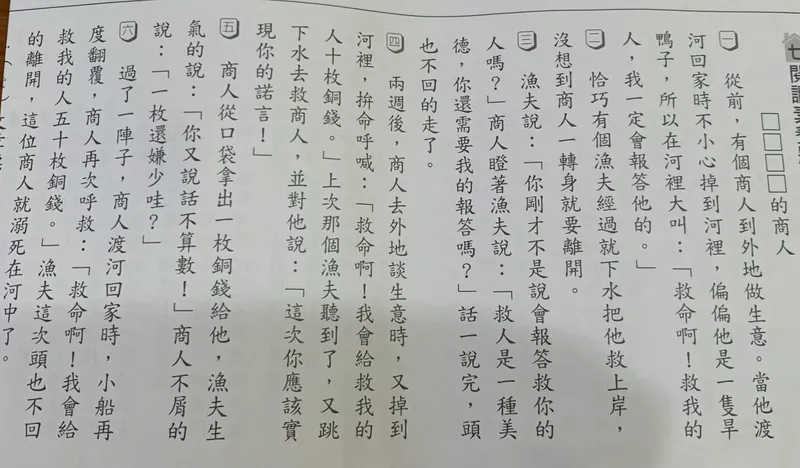 七
□□□□的商人
一 從前，有個商人到外地做生意。當他渡
河回家時不小心掉到河裡，偏偏他是一隻旱
鴨子，所以在河裡大叫：「救命啊！救我的
人，我一定會報答他的。」
二 恰巧有個漁夫經過就下水把他救上岸，
沒想到商人一轉身就要離開。
三 漁夫說：「你剛才不是說會報答救你的
人嗎？」商人瞪著漁夫說：「救人是一種美
德，你還需要我的報答嗎？」話一說完，頭
也不回的走了。
四 兩週後，商人去外地談生意時，又掉到
河裡，拚命呼喊：「救命啊！我會給救我的
人十枚銅錢。」上次那個漁夫聽到了，又跳
下水去救商人，並對他說：「這次你應該實
現你的諾言！」
五 商人從口袋拿出一枚銅錢給他，漁夫生
氣的說：「你又說話不算數！」商人不屑的
說：「一枚還嫌少哇？」
六 過了一陣子，商人渡河回家時，小船再
度翻覆，商人再次呼救：「救命啊！我會給
救我的人五十枚銅錢。」漁夫這次頭也不回
的離開，這位商人就溺死在河中了。